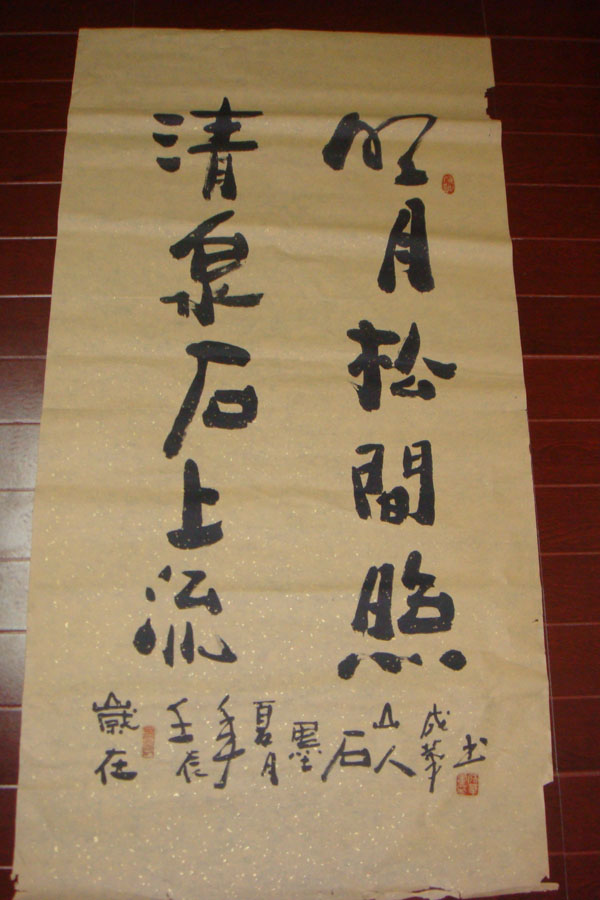 明月松間照
清泉石上流
歲在
壬辰
年
夏月
墨
石
山人
成華
书